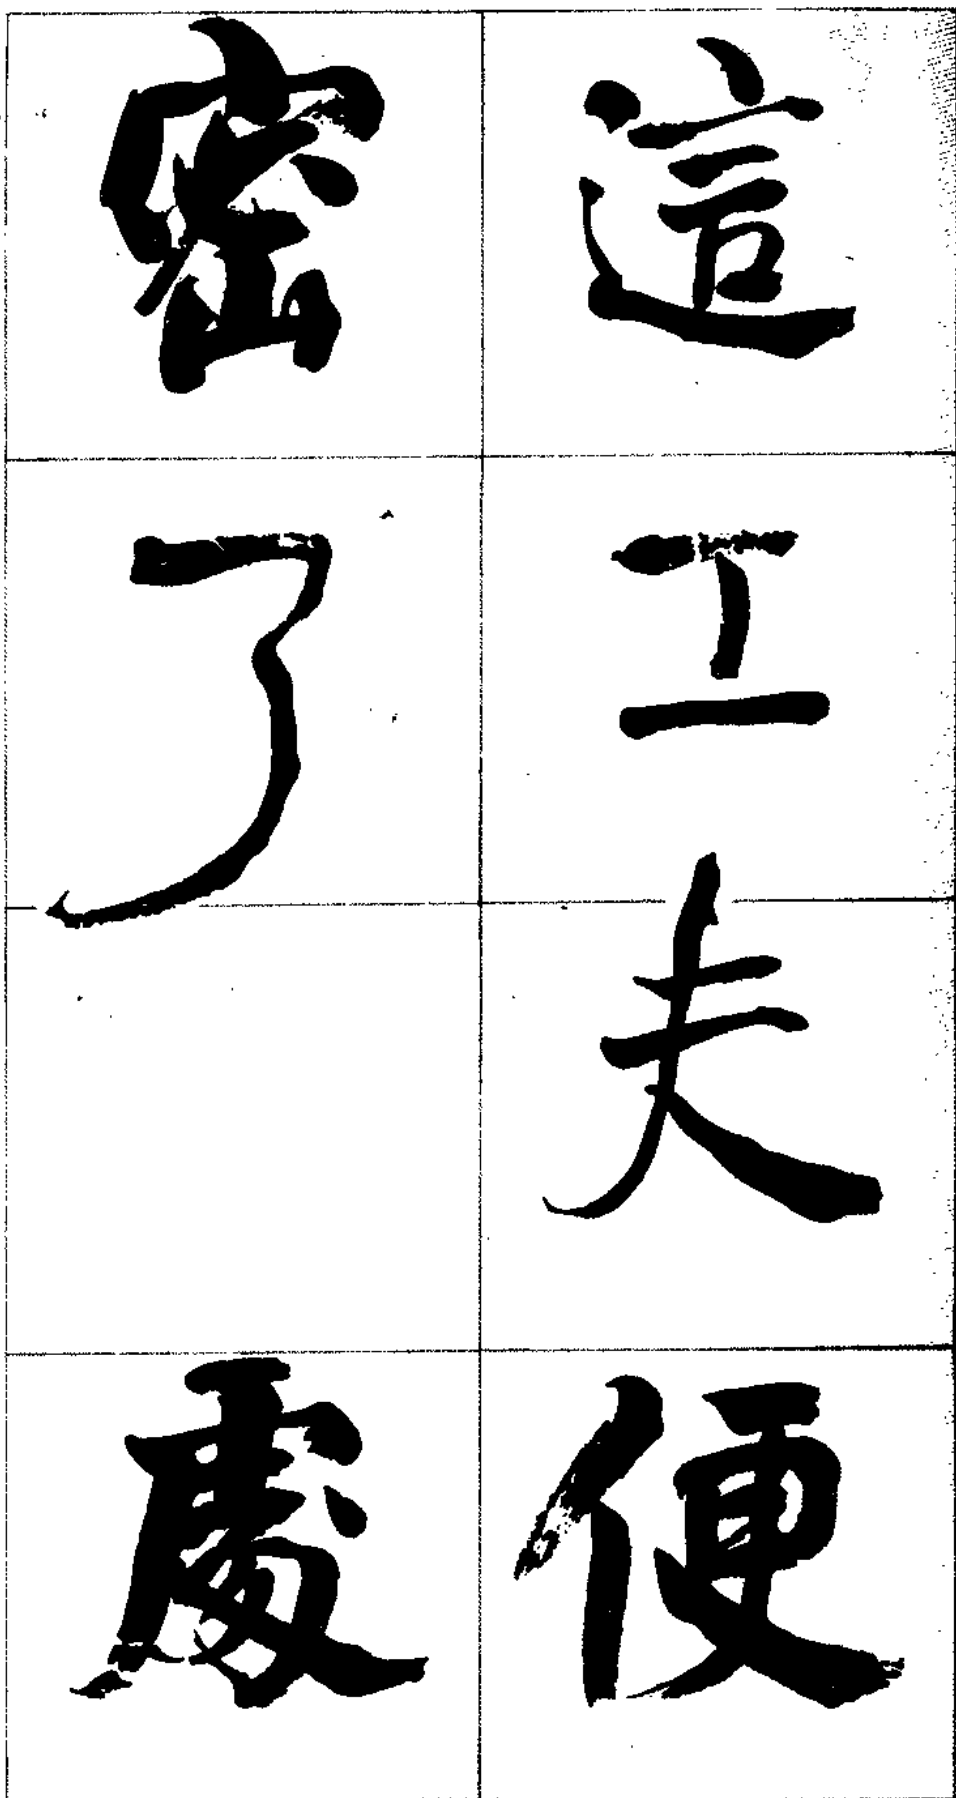 這工夫便
密了處